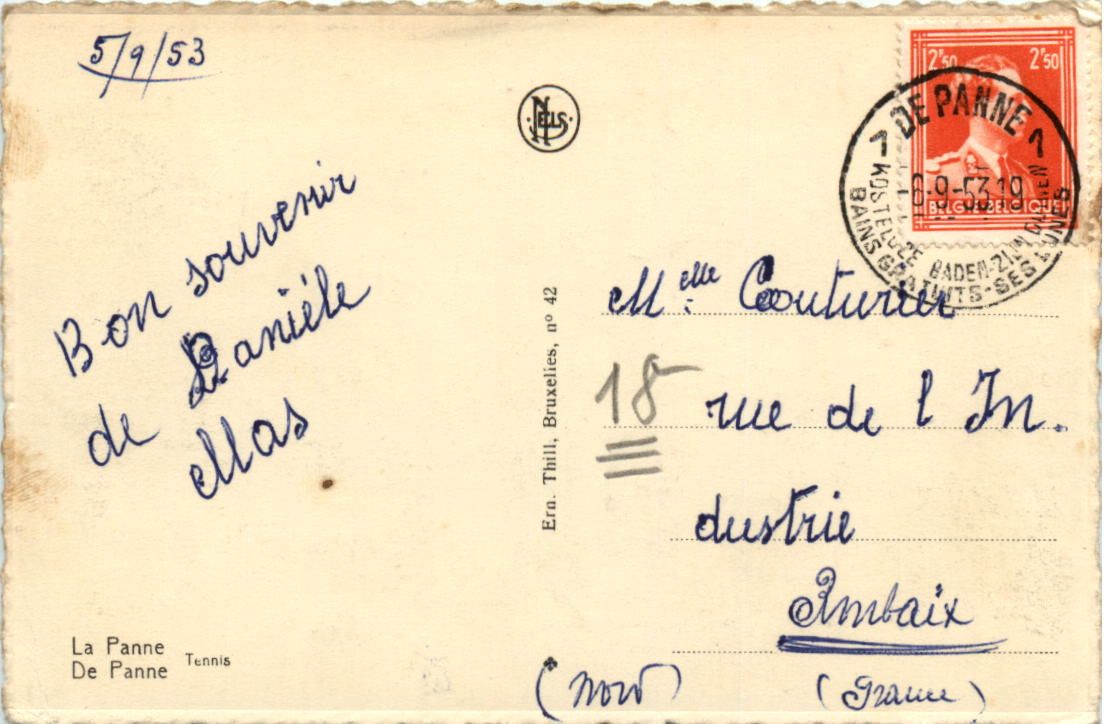 5/9/53
Bon souvenir
de Danièle
Mas
La Panne
De Panne
Tennis
NELS
Ern. Thill, Bruxelles, nº 42
2F50 2F50
BELGIE-BELGIQUE
1 DE PANNE 1
6-9-53 19
KOSTELOZE BADEN-ZIJN DUINEN
BAINS GRATUITS-SES DUNES
Melle Couturier
18 rue de l In.
dustrie
Roubaix
(Nord) (France)